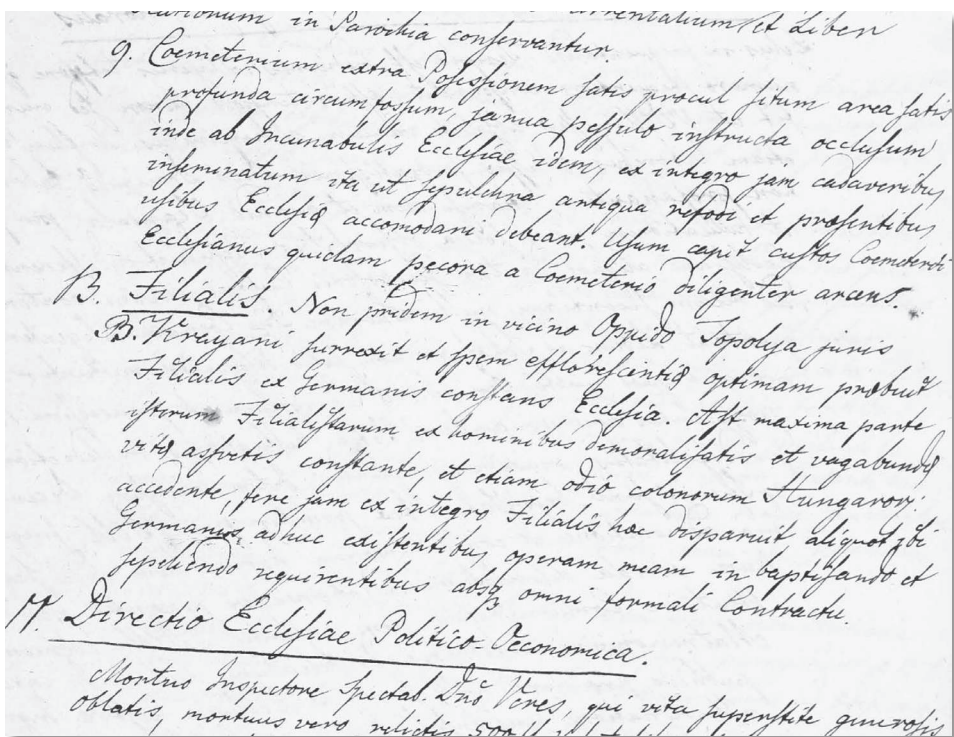 rationum in Parochia conservantur.
9. Coemeterium extra Possessionem satis procul situm area satis
profunda circumfossum, janua pessulo instructa occlusum
inde ab Incunabulis Ecclesiae idem, ex integro jam cadaveribus
inseminatum ita ut sepulchra antiqua refodi et praesentibus
usibus Ecclesię accomodari debeant. Usum capit custos Coemeterii
Ecclesianus quidam pecora a Coemeterio diligenter arcens.
B. Filialis. Non pridem in vicino Oppido Topolya juris
B. Krayani surrexit et spem efflorescentię optimam praebuit
Filialis ex Germanis constans Ecclesia. Ast maxima parte
istorum Filialistarum ex hominibus demoralisatis et vagabundę
vitę assvetis constante, et etiam odio colonorum Hungaror.
accedente, fere jam ex integro Filialis haec disparuit, aliquot ibi
Germanis, adhuc existentibus operam meam in baptisando et
sepeliendo requirentibus absq omni formali Contractu.
Directio Ecclesiae Politico-Oeconomica.
Mortuo Inspectore Spectab. Dno Veres, qui vita superstite generosis
oblatis, mortuus vero relictis 500